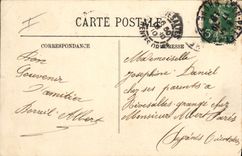 CARTE POSTALE
CORRESPONDANCE
ADRESSE
Bon
Souvenir
Familier
Benoit Albert
Mademoiselle
Josephine Daniel
chez ses parents a
Rivesaltes grange chez
Monsieur Albert Parès
Pyrénés Orientales